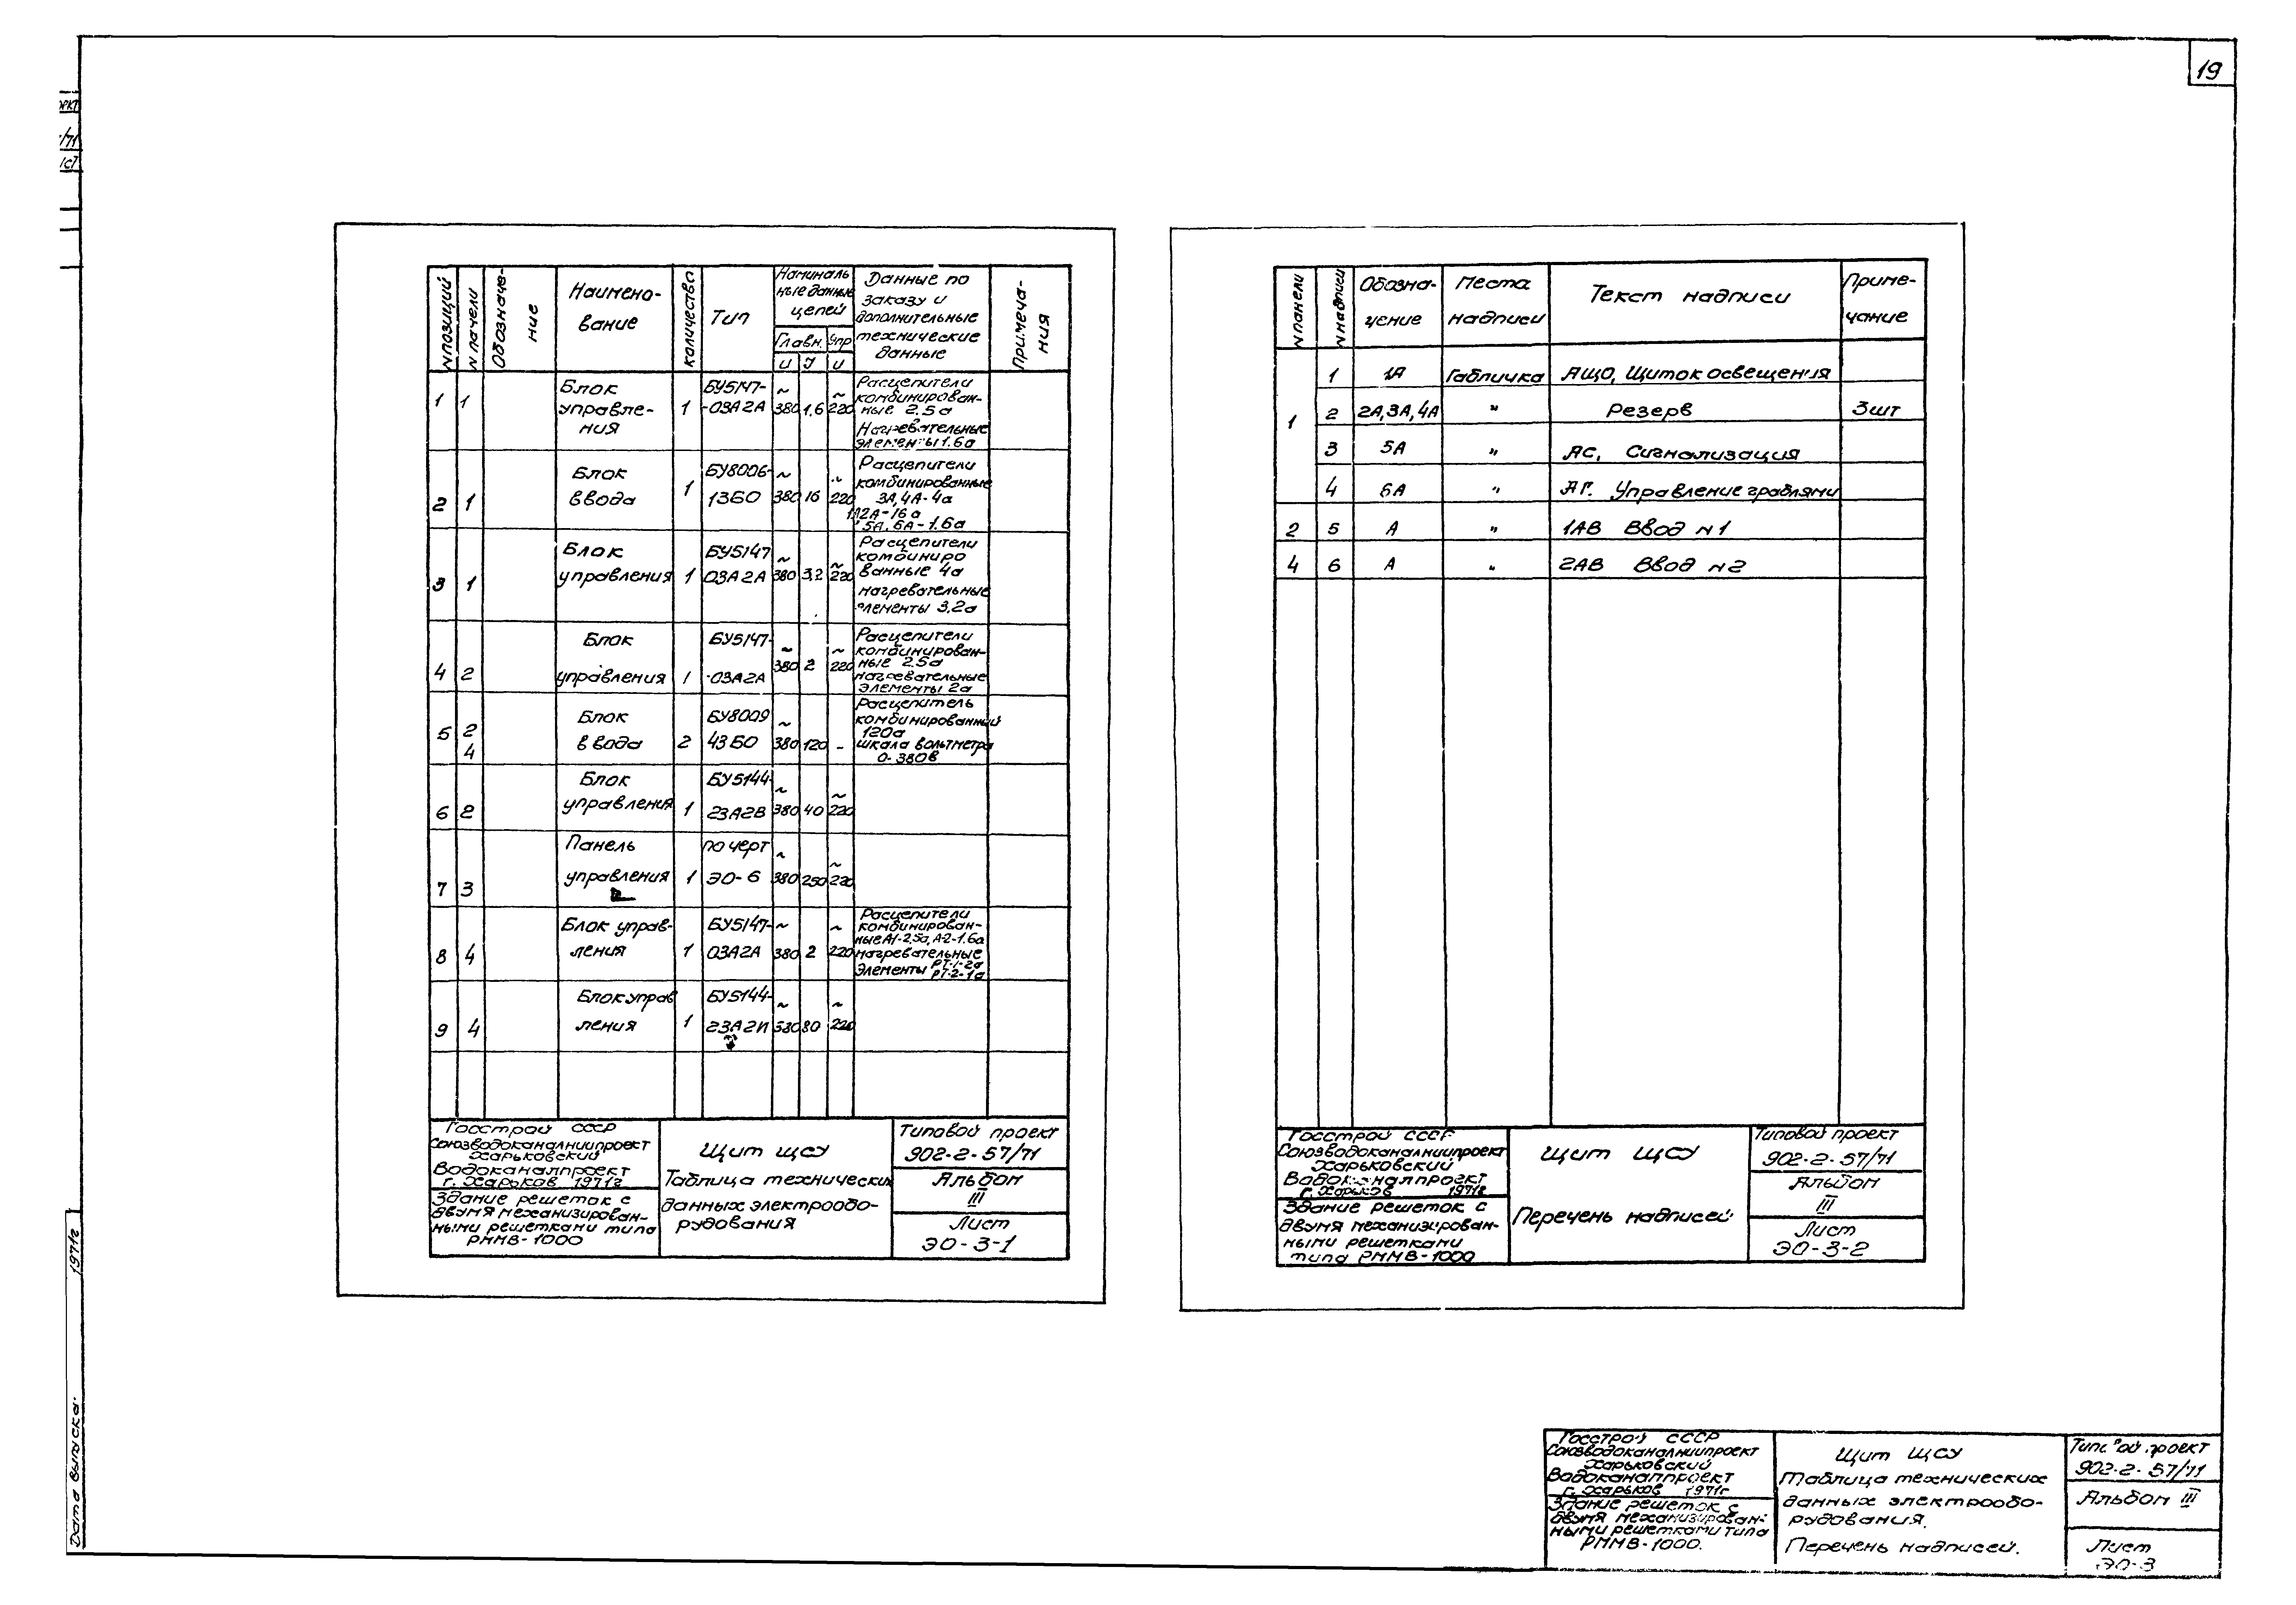 19
1971г
Дата выпуска.
N позиций
N панели
Обозначе-
ние
Наимено-
вание
количество
Тип
Номиналь
ные данные
цепей
Главн. Упр
U J U
Данные по
заказу и
дополнительные
технические
данные
Примеча-
ния
1 1 Блок управле- ния 1 БУ5147- -03А2А ~380 1,6 ~220
Расцепители
комбинирован-
ные 2.5а
Нагревательные
элементы 1.6а
2 1 Блок ввода 1 БУ8006- 13Б0 ~380 16 ~220
Расцепители
комбинированные
3А, 4А-4а
1,2А-16а
5А, 6А-1.6а
3 1 Блок управления 1 БУ5147 03А2А ~380 3,2 ~220
Расцепители
комбиниро
ванные 4а
нагревательные
элементы 3,2а
4 2 Блок управления 1 БУ5147- -03А2А ~380 2 ~220
Расцепители
комбинирован-
ные 2.5а
нагревательные
элементы 2а
5 2 4 Блок ввода 2 БУ8009 43Б0 ~380 120 -
Расцепитель
комбинированный
120а
шкала вольтметра
0-380в
6 2 Блок управления 1 БУ5144- 23А2В ~380 40 ~220
7 3 Панель управления 1 по черт ЭО-6 ~380 250 ~220
8 4 Блок управ- ления 1 БУ5147- 03А2А ~380 2 ~220
Расцепители
комбинирован-
ные А1-2.5а, А2-1.6а
нагревательные
элементы РТ-1-2а
РТ-2-1а
9 4 Блок управ ления 1 БУ5144- 23А2И ~380 80 ~220
Госстрой СССР
Союзводоканалниипроект
Харьковский
Водоканалпроект
г. Харьков 1971г
Здание решеток с
двумя механизирован-
ными решетками типа
РММВ-1000
Щит ЩСУ
Таблица технических
данных электрообо-
рудования
Типовой проект
902-2-57/71
Альбом
III
Лист
ЭО-3-1
N панели
N надписи
Обозна-
чение
Места
надписи
Текст надписи
Приме-
чание
1 1 1А Табличка АЩО, Щиток освещения
2 2А,3А,4А " Резерв 3шт
3 5А " АС, Сигнализация
4 6А " АГ. Управление граблями
2 5 А " 1АВ Ввод N1
4 6 А " 2АВ Ввод N2
Госстрой СССР
Союзводоканалниипроект
Харьковский
Водоканалпроект
г. Харьков 1971г
Здание решеток с
двумя механизирован-
ными решетками
типа РММВ-1000
Щит ЩСУ
Перечень надписей
Типовой проект
902-2-57/71
Альбом
III
Лист
ЭО-3-2
Госстрой СССР
Союзводоканалниипроект
Харьковский
Водоканалпроект
г. Харьков 1971г
Здание решеток с
двумя механизирован-
ными решетками типа
РММВ-1000.
Щит ЩСУ
Таблица технических
данных электрообо-
рудования.
Перечень надписей.
Типовой проект
902-2-57/71
Альбом III
Лист
ЭО-3